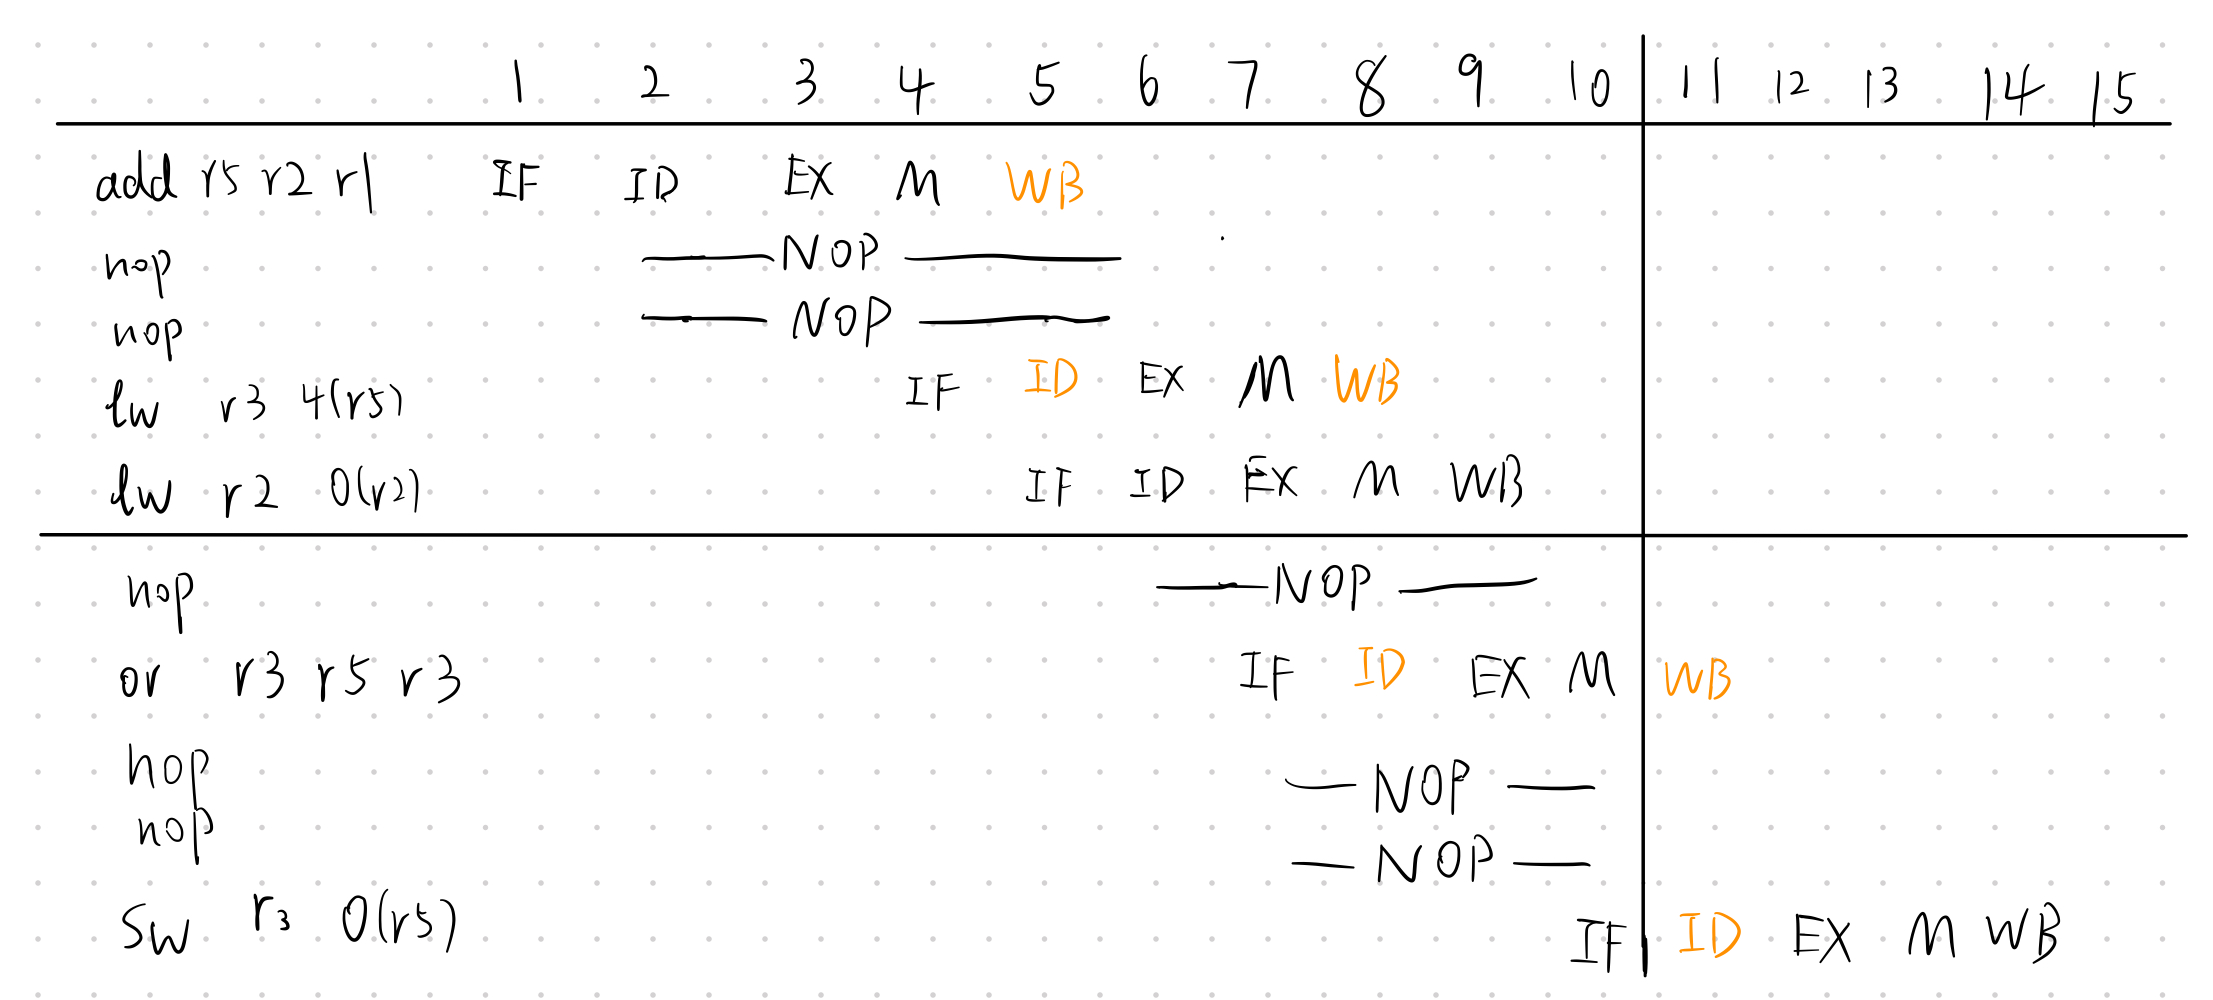 1 2 3 4 5 6 7 8 9 10 11 12 13 14 15
add r5 r2 r1 IF ID EX M WB
nop NOP
nop NOP
lw r3 4(r5) IF ID EX M WB
lw r2 0(r2) IF ID EX M WB
nop NOP
or r3 r5 r3 IF ID EX M WB
nop NOP
nop NOP
sw r3 0(r5) IF ID EX M WB